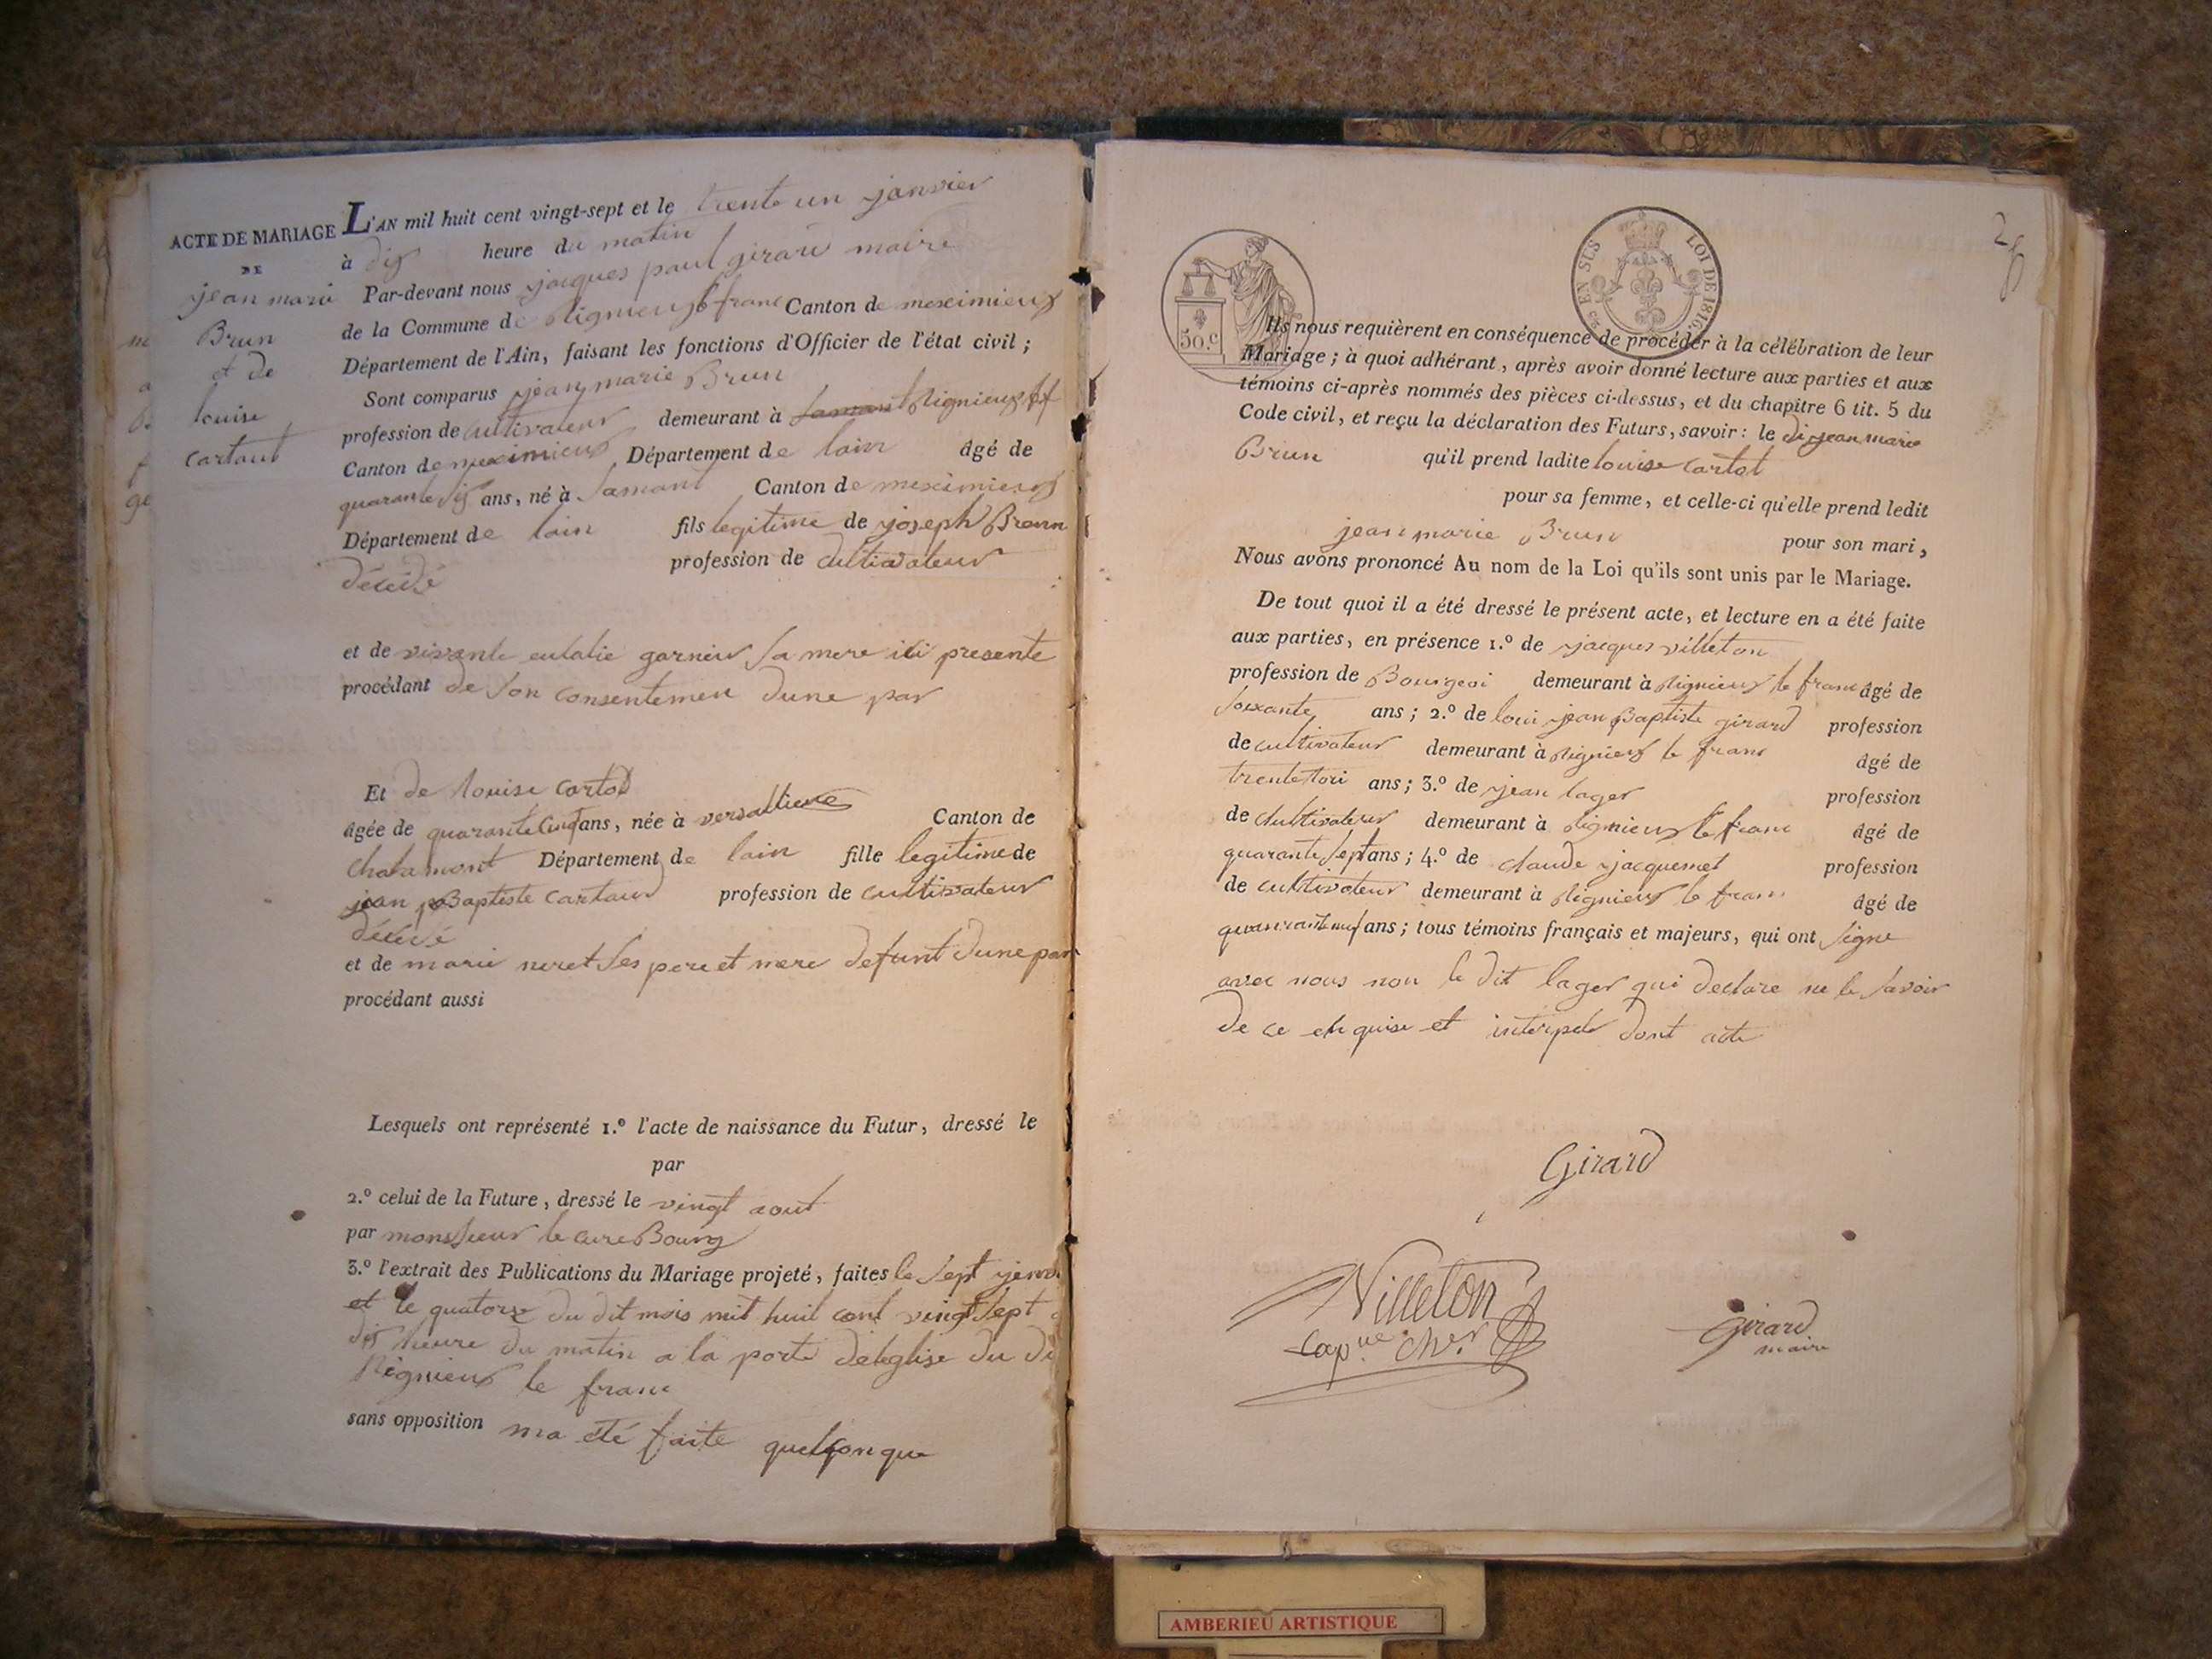 ACTE DE MARIAGE
DE
jean marie
Brun
et de
louise
cartaut
L'AN mil huit cent vingt-sept et le trente un janvier
à dix heure du matin
Par-devant nous jacques paul girard maire
de la Commune de Rignieux le franc Canton de meximieux
Département de l'Ain, faisant les fonctions d'Officier de l'état civil ;
Sont comparus jean marie Brun
profession de cultivateur demeurant à Rignieux lf
Canton de meximieux Département de lain âgé de
quarante six ans, né à Samant Canton de meximieux
Département de lain fils legitime de joseph Broun
profession de cultivateur
décédé
et de vivante eulalie garnier sa mere ici presente
procédant de son consentemen dune par
Et de louise cartod
âgée de quarante cinq ans, née à versallieux Canton de
chalamont Département de lain fille legitime de
jean Baptiste cartaud profession de cultivateur
décédé
et de marie neret ses pere et mere defunt dune par
procédant aussi
Lesquels ont représenté 1.º l'acte de naissance du Futur, dressé le
par
2.º celui de la Future, dressé le vingt aout
par monssieur le cure Bourg
3.º l'extrait des Publications du Mariage projeté, faites le sept
et le quatorze du dit mois mil huil cent vingt sept
dix heure du matin a la porte deleglise du di
Rignieux le franc
sans opposition ma été faite quelconque
50.c
EN SUS LOI DE 1816.
Ils nous requièrent en conséquence de procéder à la célébration de leur
Mariage ; à quoi adhérant, après avoir donné lecture aux parties et aux
témoins ci-après nommés des pièces ci-dessus, et du chapitre 6 tit. 5 du
Code civil, et reçu la déclaration des Futurs, savoir : le di jean marie
Brun qu'il prend ladite louise cartot
pour sa femme, et celle-ci qu'elle prend ledit
jean marie Brun pour son mari,
Nous avons prononcé Au nom de la Loi qu'ils sont unis par le Mariage.
De tout quoi il a été dressé le présent acte, et lecture en a été faite
aux parties, en présence 1.º de jacques villeton
profession de Bourgeoi demeurant à Rignieux le franc âgé de
soixante ans ; 2.º de loui jean Baptiste girard profession
de cultivateur demeurant à Rignieux le franc âgé de
trente troi ans ; 3.º de jean lager profession
de cultivateur demeurant à Rignieux le franc âgé de
quarante sept ans ; 4.º de claude jacquemet profession
de cultivateur demeurant à Rignieux le franc âgé de
quarante neuf ans ; tous témoins français et majeurs, qui ont signe
avec nous non le dit lager qui declare ne le savoir
de ce enquise et interpelé dont acte
Girard
Villeton
cap.ne ch.er
Girard
maire
AMBERIEU ARTISTIQUE